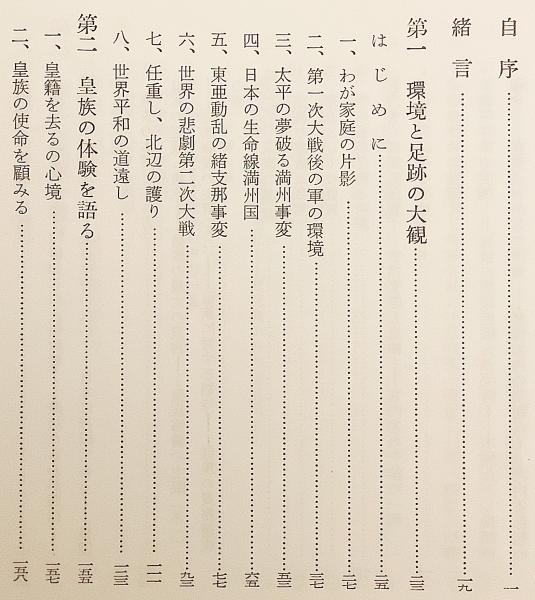 自序……一
緒言……一九
第一 環境と足跡の大観……二三
はじめに……二五
一、わが家庭の片影……二七
二、第一次大戦後の軍の環境……三七
三、太平の夢破る満州事変……五三
四、日本の生命線満州国……六五
五、東亜動乱の緒支那事変……七七
六、世界の悲劇第二次大戦……九三
七、任重し、北辺の護り……一一一
八、世界平和の道遠し……一三三
第二 皇族の体験を語る……一五五
一、皇籍を去るの心境……一五七
二、皇族の使命を顧みる……一五八